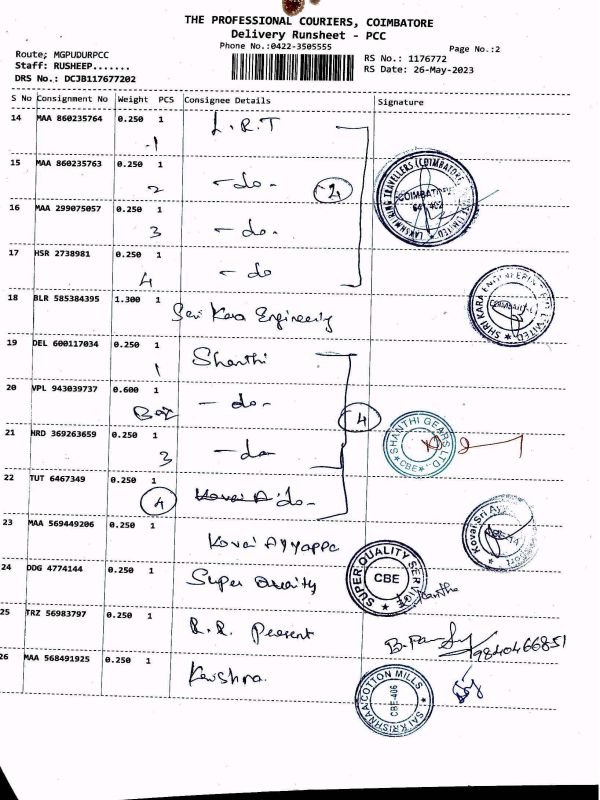 THE PROFESSIONAL COURIERS, COIMBATORE
Delivery Runsheet - PCC
Phone No.:0422-3505555
Page No.:2
Route; MGPUDURPCC
Staff: RUSHEEP.......
DRS No.: DCJB117677202
RS No.: 1176772
RS Date: 26-May-2023
S No Consignment No Weight PCS Consignee Details Signature
14 MAA 860235764 0.250 1 L.R.T
1
15 MAA 860235763 0.250 1 -do-
2
4
LAKSHMI RING TRAVELLERS (COIMBATORE) LIMITED
16 MAA 299075057 0.250 1 -do-
3
17 HSR 2738981 0.250 1 -do
4
18 BLR 585384395 1.300 1 Sri Kara Engineering
SHRI KARA ENGINEERING LIMITED
19 DEL 600117034 0.250 1 Shanthi
1
20 VPL 943039737 0.600 1 -do-
Box
4
21 HRD 369263659 0.250 1 -do-
3
SHANTHI GEARS LTD.
★CBE★
22 TUT 6467349 0.250 1 Kovai A do-
4
23 MAA 569449206 0.250 1 Kovai Ayyappa
Kovai Sri Ayy
24 DDG 4774144 0.250 1 Super Quality
SUPER QUALITY SERVICE
CBE
25 TRZ 56983797 0.250 1 R.R.
9840466851
26 MAA 568491925 0.250 1 Krishna
SAI KRISHNA COTTON MILLS
CBE-406